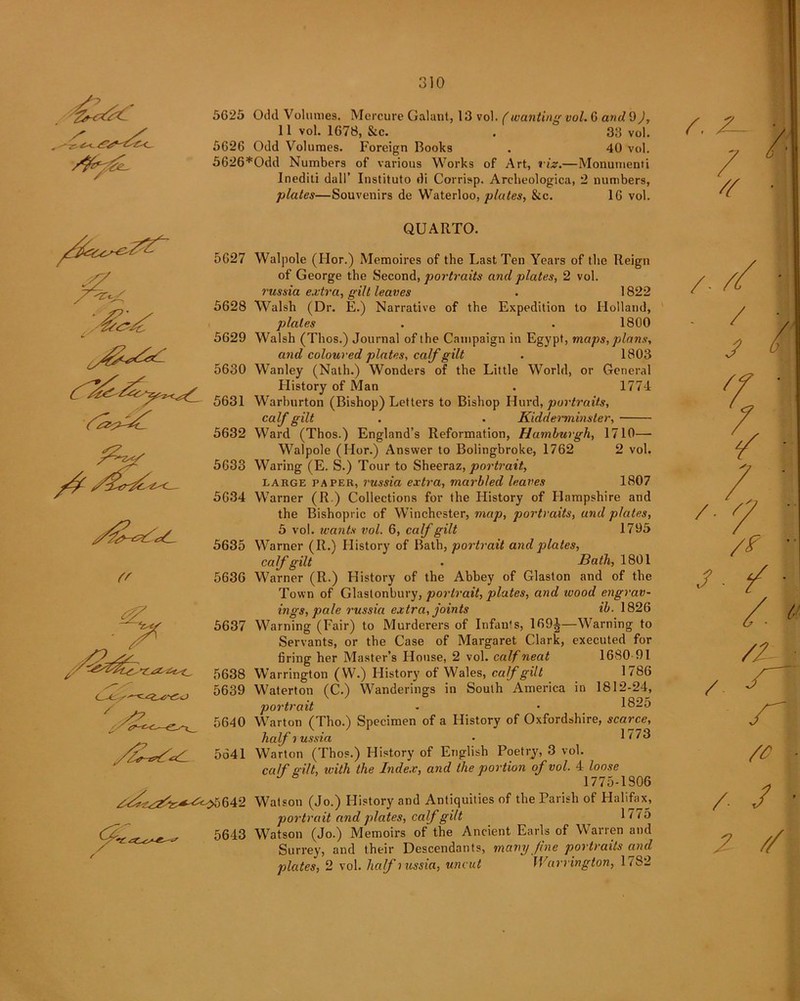 310
5625 Odd Volumes. Mercure Galant, 13 vol. (wanting vol. 6 and 9),
11 vol. 1678, &c. . 33 vol.
5626 Odd Volumes. Foreign Books . 40 vol.
5626*Odd Numbers of various Works of Art, viz.—Monumenti
Inediti dall' Instituto di Corrisp. Archeologica, 2 numbers,
plates—Souvenirs de Waterloo, plates, &c. 16 vol.
QUARTO.
5627 Walpole (Hor.) Memoires of the Last Ten Years of the Reign
of George the Second, portraits and plates, 2 vol.
russia extra, gilt leaves . 1822
5628 Walsh (Dr. E.) Narrative of the Expedition to Holland,
plates . . 1800
5629 Walsh (Thos.) Journal of the Campaign in Egypt, maps, plans,
and coloured plates, calf gilt . 1803
5630 Wanley (Nath.) Wonders of the Little World, or General
History of Man . 1774
5631 Warburton (Bishop) Letters to Bishop Hurd, portraits,
calf gilt . . Kidderminster, ——
5632 Ward (Thos.) England's Reformation, Hamburgh, 1710—
Walpole (Hor.) Answer to Bolingbroke, 1762 2 vol.
5633 Waring (E. S.) Tour to Sheeraz, portrait,
LARGE PAPER, russia extra, marbled leaves 1807
5634 Warner (R.) Collections for the History of Hampshire and
the Bishopric of Winchester, map, portraits, and plates,
5 vol. wants vol. 6, calf gilt 1795
5635 Warner (R.) History of Bath, portrait and plates,
calf gilt . Bath, 1801
5636 Warner (R.) History of the Abbey of Glaston and of the
Town of Glastonbury, portrait, plates, and wood engrav-
ings, pale russia extra, joints ib. 1826
5637 Warning (Fair) to Murderers of Infants, 169½—Warning to
Servants, or the Case of Margaret Clark, executed for
firing her Master's House, 2 vol. calf neat 1680-91
5638 Warrington (W.) History of Wales, calf gilt 1786
5639 Waterton (C.) Wanderings in South America in 1812-24,
portrait . . 1825
5640 Warton (Tho.) Specimen of a History of Oxfordshire, scarce,
half russia . 1773
5641 Warton (Thos.) History of English Poetry, 3 vol.
calf gilt, with the Index, and the portion of vol. 4 loose
1775-1806
5642 Watson (Jo.) History and Antiquities of the Parish of Halifax,
portrait and plates, calf gilt 1775
5643 Watson (Jo.) Memoirs of the Ancient Earls of Warren and
Surrey, and their Descendants, many fine portraits and
plates, 2 vol. half russia, uncut Warrington, 1782